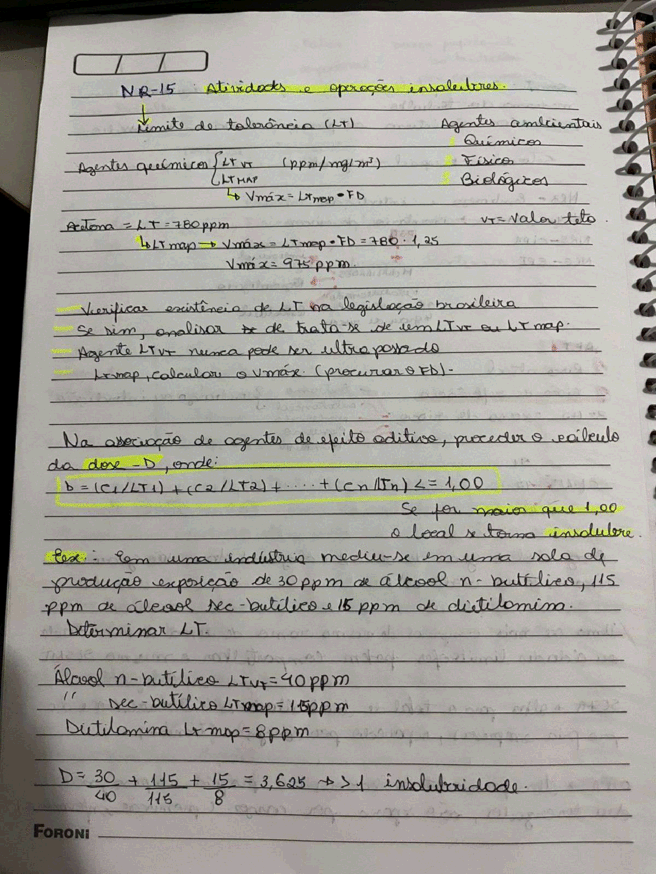 NR-15 Atividades e operações insalubres.
Limite de tolerância (LT)
Agentes ambientais
Químicos
Físicos
Biológicos
Agentes químicos { LTVT (ppm/mg/m³)
LTMAP
↳ Vmáx = LTmap • FD
VT = Valor teto.
Acetona = LT = 780 ppm
↳ LTmap → Vmáx = LTmap • FD = 780 · 1,25
Vmáx = 975 ppm.
– Verificar existência de LT na legislação brasileira
– Se sim, analisar se de trata-se de um LTVT ou LTmap.
– Agente LTVT nunca pode ser ultrapassado
– LTmap, calcular o Vmáx. (procurar o FD).
Na associação de agentes de efeito aditivo, proceder o cálculo
da dose -D, onde:
D = (C1/LT1) + (C2/LT2) + ..... + (Cn/Tn) <= 1,00
Se for maior que 1,00
o local se torna insalubre.
Ex: Em uma indústria mediu-se em uma sala de
produção exposição de 30 ppm de álcool n-butílico, 115
ppm de álcool sec-butílico e 15 ppm de dietilamina.
Determinar LT.
Álcool n-butílico LTVT = 40 ppm
" sec-butílico LTmap = 115ppm
Dietilamina LTmap = 8 ppm
D = 30/40 + 115/115 + 15/8 = 3,625 → > 1 insalubridade.
FORONI